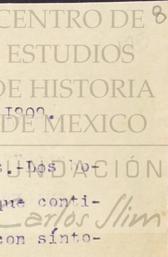 CENTRO DE 8
ESTUDIOS
DE HISTORIA
1909.
DE MEXICO
s.-Dos
FUNDACIÓN
que conti-
Carlos Slim
con sínto-